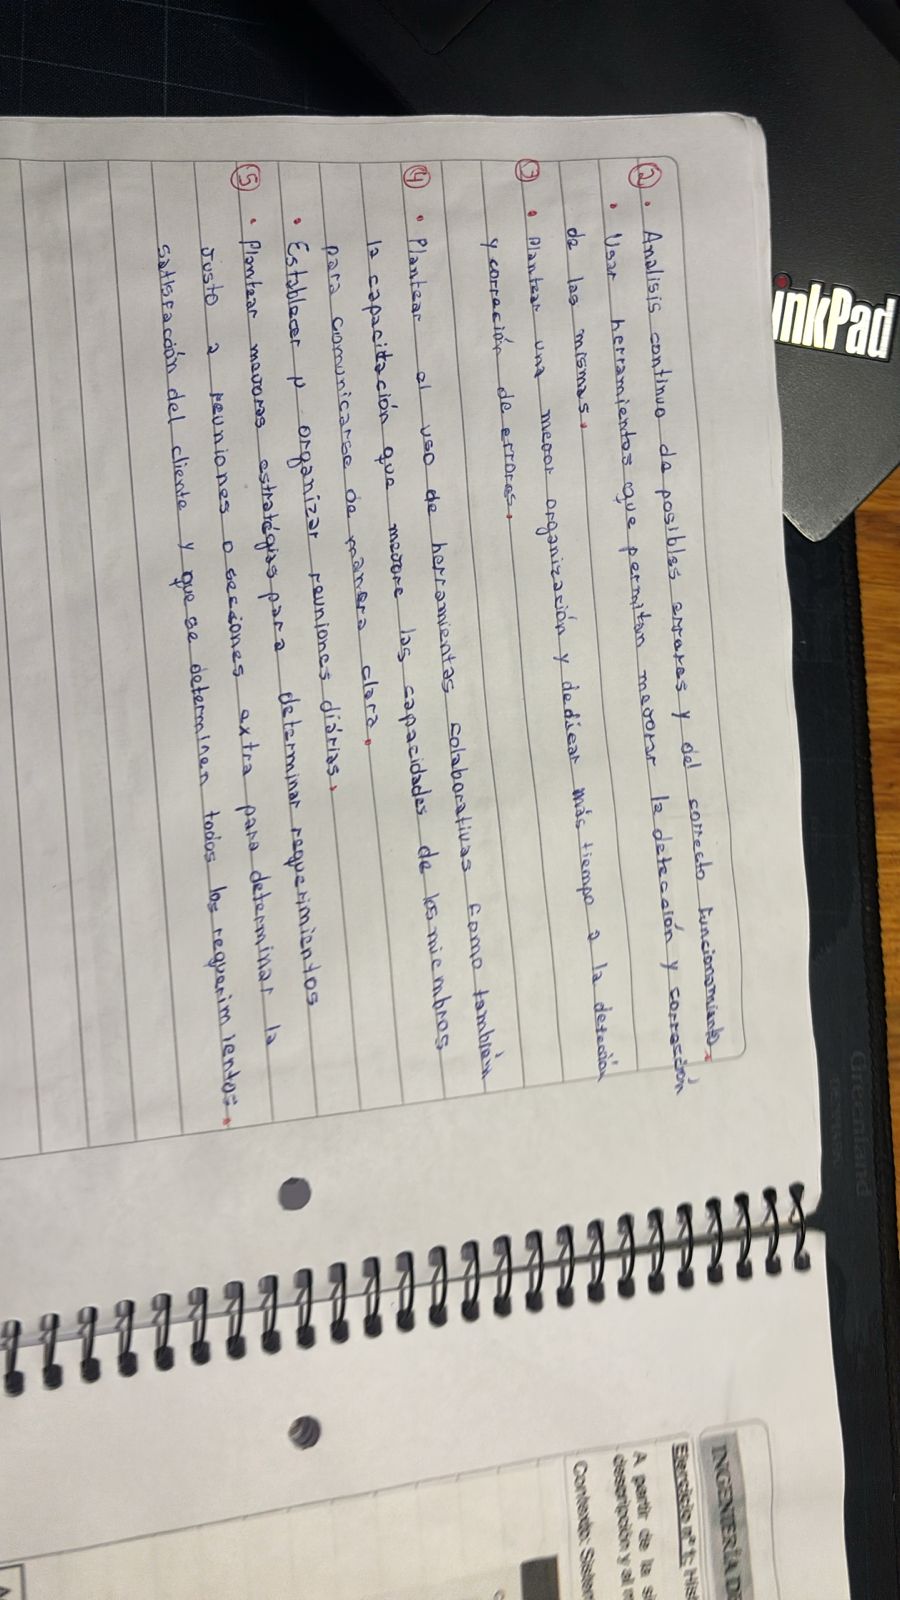 ② • Analisis continuo de posibles errores y del correcto funcionamiento.
• Usar herramientos que permitan mevorar la detección y corrección
de las mismas.
③ • Plantear una mevor organización y dedicar más tiempo a la detección
y corrección de errores.
④ • Plantear el uso de herramientas colaborativas como también
la capacitación que mevore las capacidades de los miembros
para comunicarse de manera clara.
• Establecer y organizar reuniones diárias.
⑤ • Plantear mevores estratégias para determinar requerimientos
Justo a reuniones o secciones extra para determinar la
satisfacción del cliente y que se determinen todos los requerimientos.
inkPad
Greenland
INGENIERÍA DE
Ejercicio nº 1: Hist
A partir de la si
descripción y al m
Contexto: Sistem